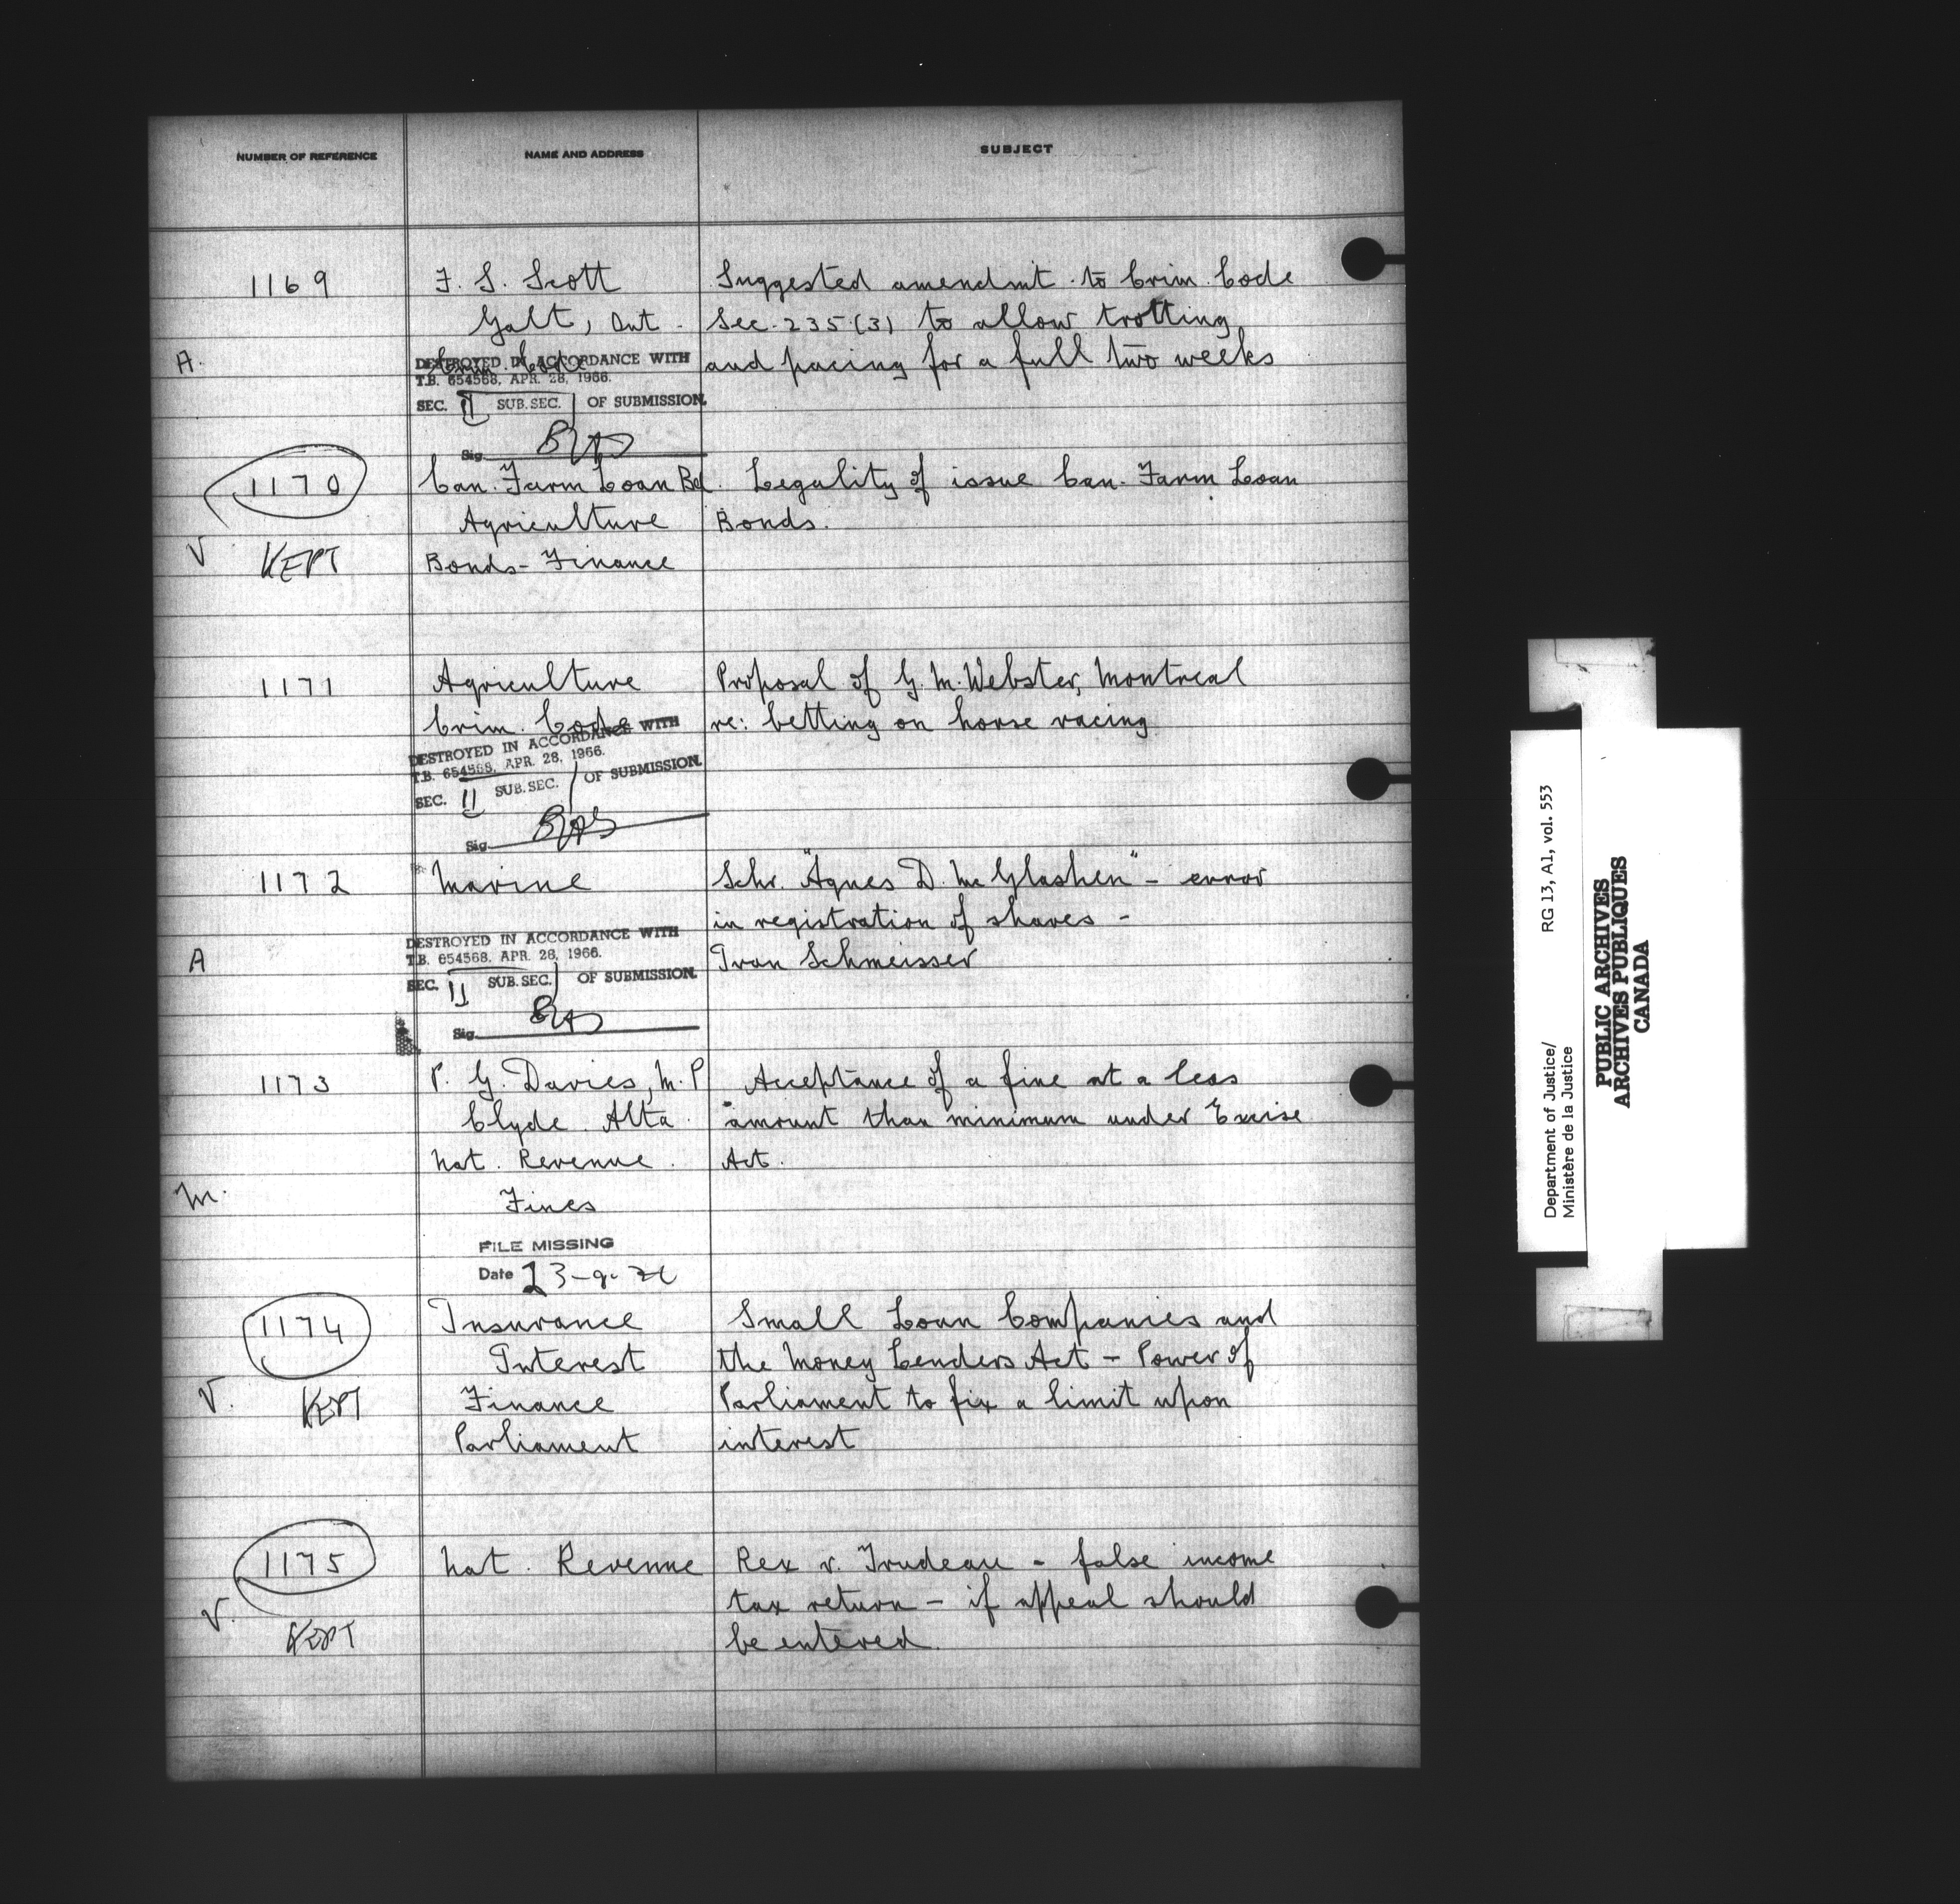 NUMBER OF REFERENCE NAME AND ADDRESS SUBJECT
1169 F. S. Scott Suggested amendmt. to Crim. Code
Galt, Ont. Sec. 235 (3) to allow trotting
A. Crim. Code and pacing for a full two weeks
DESTROYED IN ACCORDANCE WITH
T.B. 654568, APR. 28, 1966.
SEC. 11 SUB. SEC. OF SUBMISSION.
Sig.
1170 Can. Farm Loan Bd. Legality of issue Can. Farm Loan
Agriculture Bonds.
V KEPT Bonds - Finance
1171 Agriculture Proposal of G. M. Webster, Montreal
Crim. Code re: betting on horse racing
DESTROYED IN ACCORDANCE WITH
T.B. 654568, APR. 28, 1966.
SEC. 11 SUB. SEC. OF SUBMISSION.
Sig.
1172 Marine Schr. "Agnes D. McGlashen" - error
in registration of shares -
A Ivan Schmeisser
DESTROYED IN ACCORDANCE WITH
T.B. 654568, APR. 28, 1966.
SEC. 11 SUB. SEC. OF SUBMISSION.
Sig.
1173 P. G. Davies, M.P. Acceptance of a fine at a less
Clyde. Alta. amount than minimum under Excise
Nat. Revenue. Act.
M. Fines
FILE MISSING
Date 23-9-
1174 Insurance Small Loan Companies and
Interest the Money Lenders Act - Power of
V. KEPT Finance Parliament to fix a limit upon
Parliament interest
1175 Nat. Revenue Rex v. Trudeau - false income
V. tax return - if appeal should
KEPT be entered.
Department of Justice/
Ministère de la Justice
RG 13, A1, vol. 553
PUBLIC ARCHIVES
ARCHIVES PUBLIQUES
CANADA